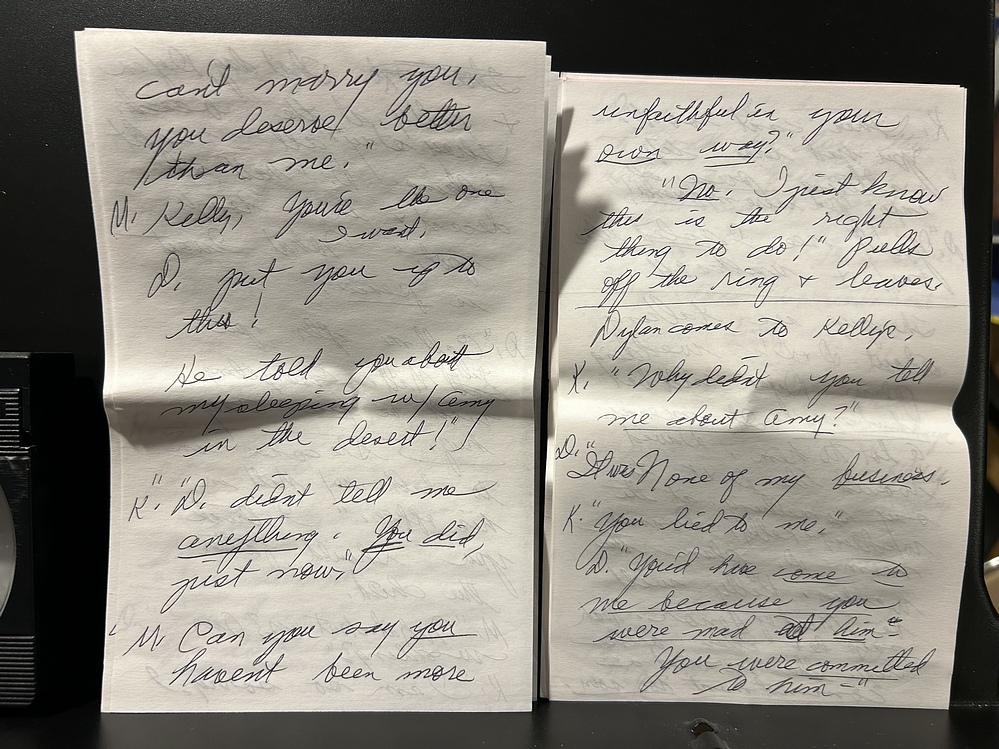 can't marry you,
you deserve better
than me."
M. Kelly, You're the one
I want.
D. put you up to
this!
He told you about
my sleeping w/ Amy
in the desert!"
K". "D. didnt tell me
anything. You did
just now."
M. Can you say you
havent been more
unfaithful in your
own way?"
"No. I just know
this is the right
thing to do!" Pulls
off the ring + leaves.
Dylan comes to Kelly's.
K. "Why didn't you tell
me about Amy?"
D. "It was None of my business.
K. "You lied to me."
D. "You'd have come to
me because you
were mad at him"
You were committed
to him—"